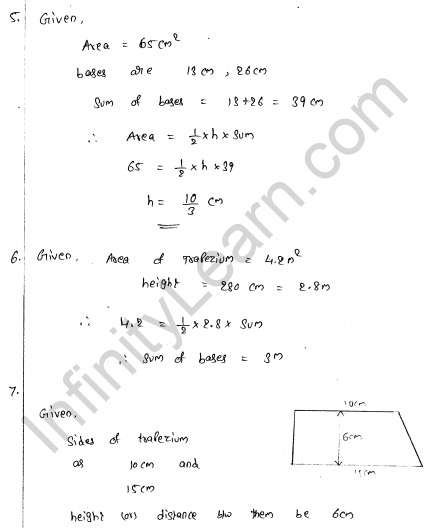 5. Given,
Area = 65cm²
bases are 13cm, 26cm
Sum of bases = 13+26 = 39cm
∴ Area = 1/2 × h × sum
65 = 1/2 × h × 39
h = 10/3 cm
6. Given, Area of trapezium = 4.2m²
height = 280 cm = 2.8m
∴ 4.2 = 1/2 × 2.8 × sum
∴ sum of bases = 3m
7.
Given,
Sides of trapezium
as 10cm and
15cm
height (or) distance b/w them be 6cm
10cm
6cm
15cm
InfinityLearn.com